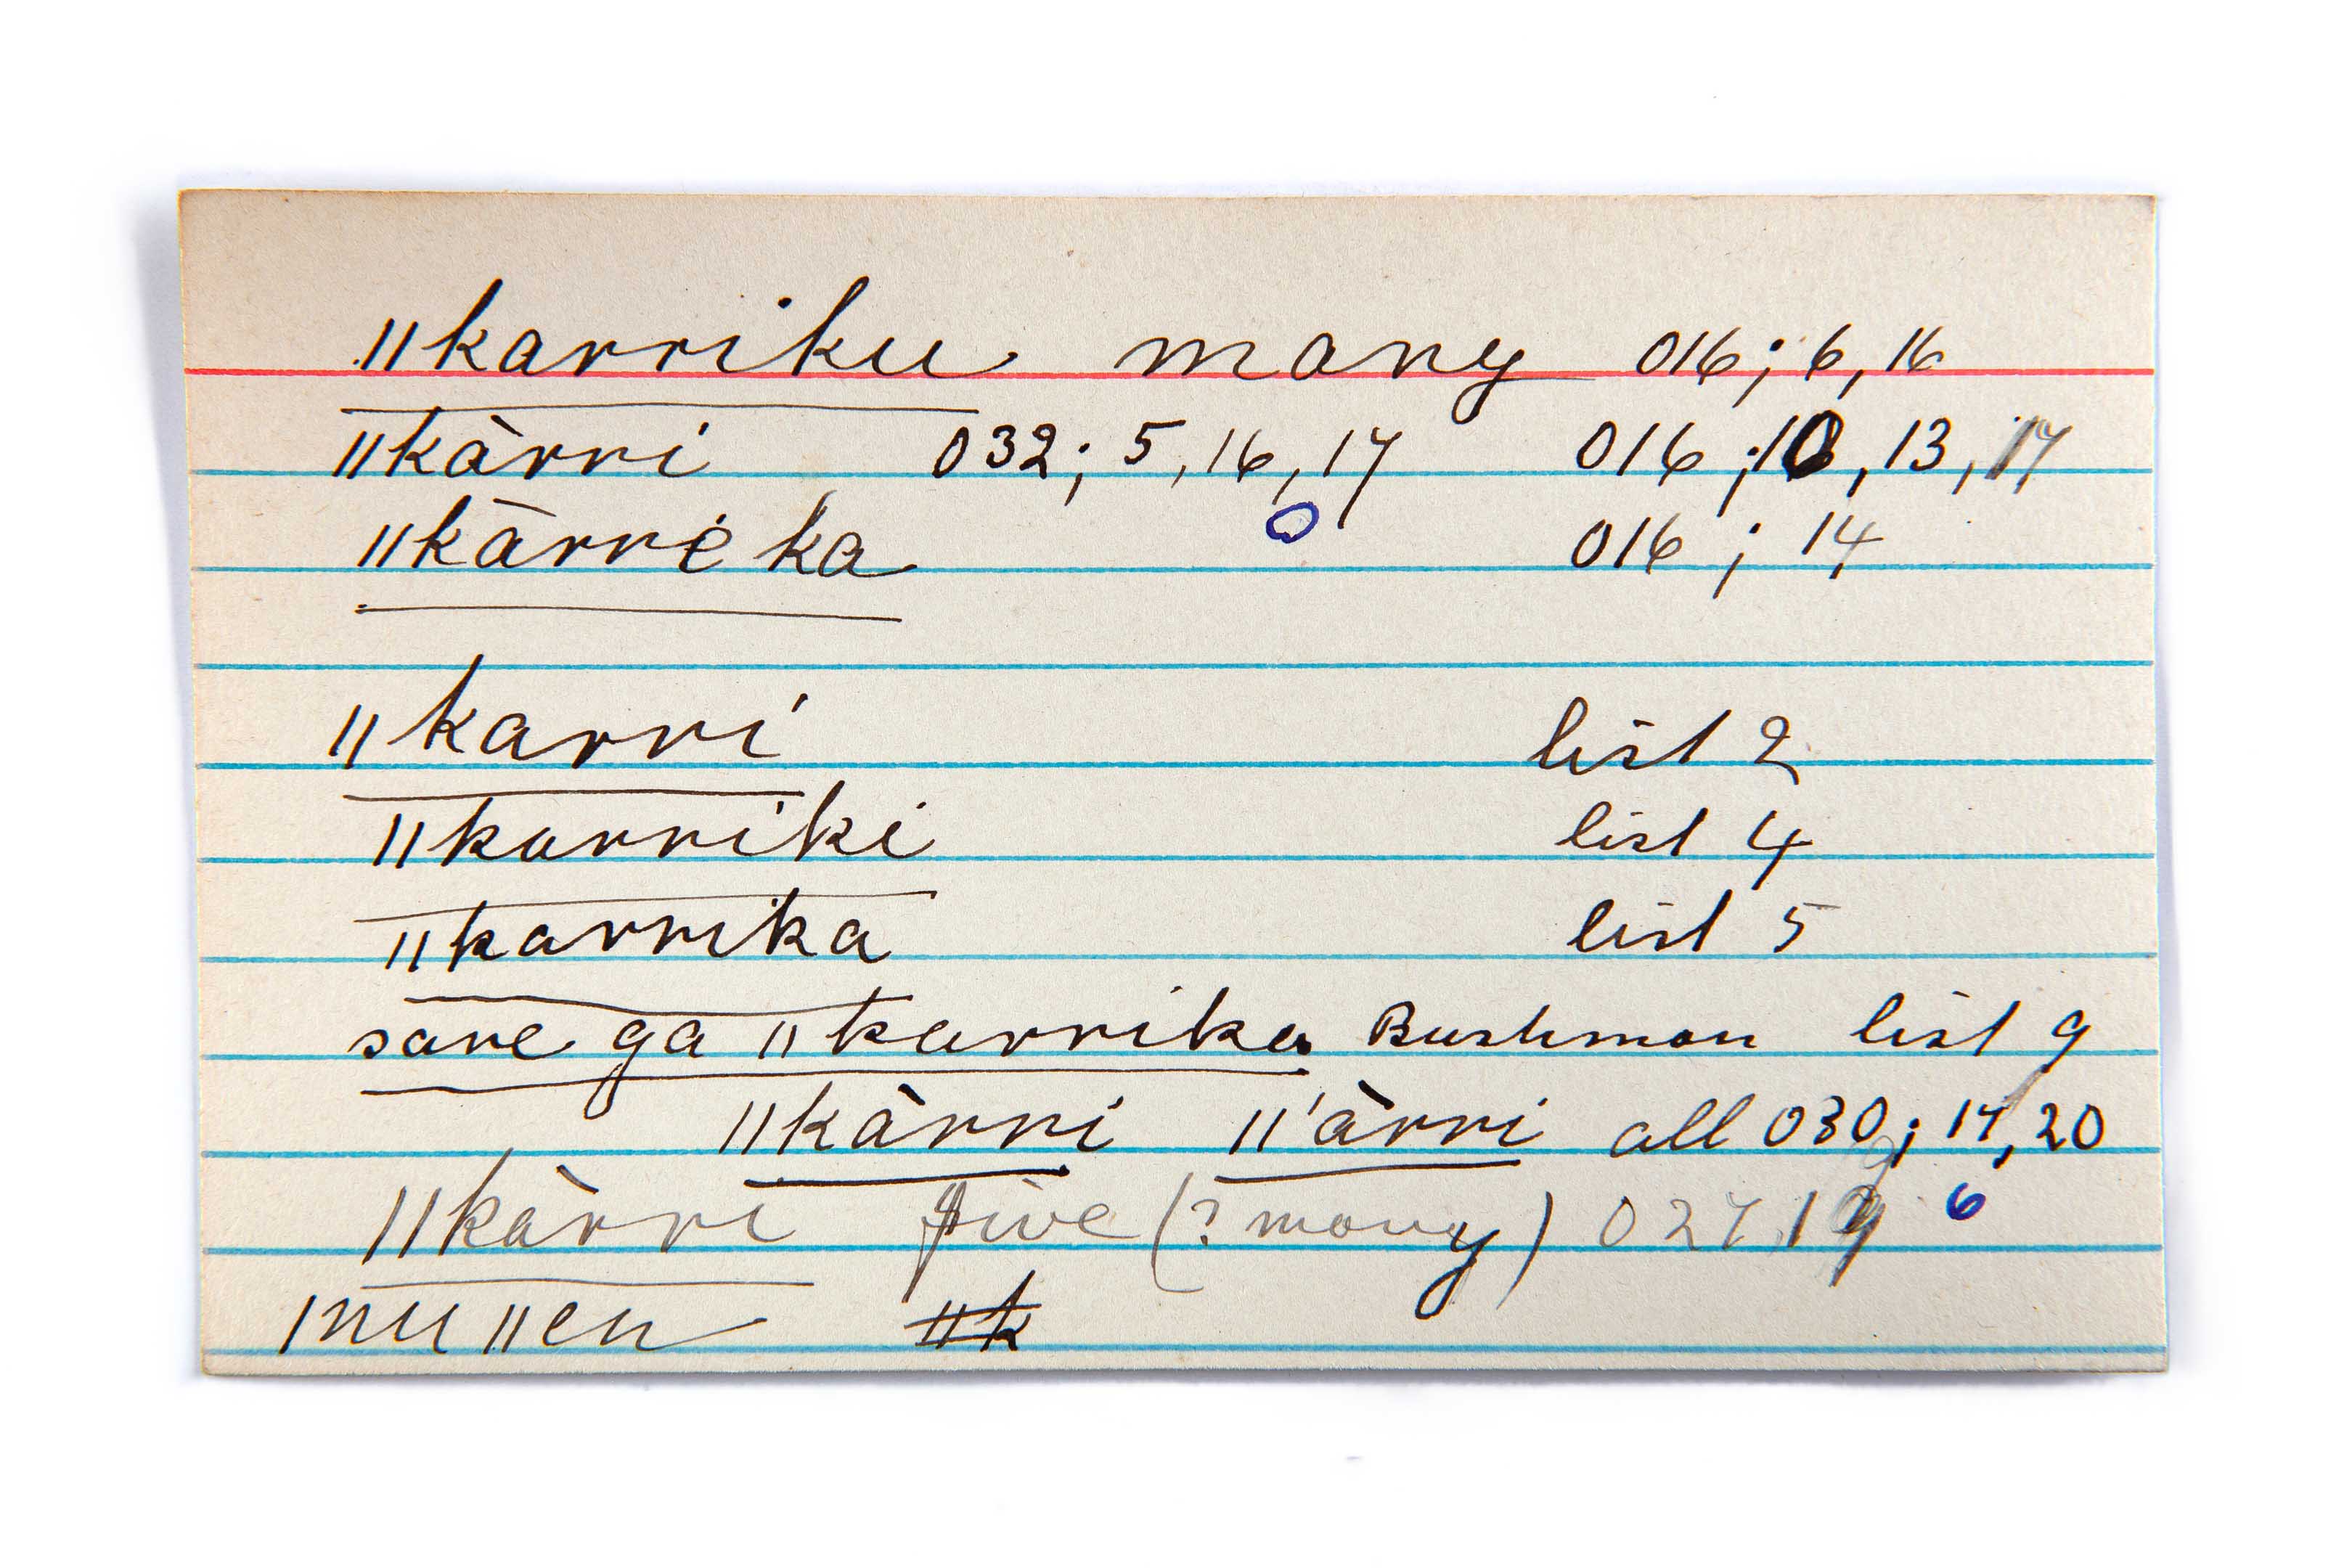 ǁkarriku many 016; 6, 16
ǁkàrri 032; 5, 16, 17 016; 10, 13, 17
ǁkārrėka 016; 14
ǁkarri list 2
ǁkarriki list 4
ǁkarrika list 5
sare ga ǁkarrika Bushman list 9
ǁkàrri ǁ'àrri all 030; 17, 20
ǁkàrri five (? many) 027, 6
ǀnuǁen ǁk